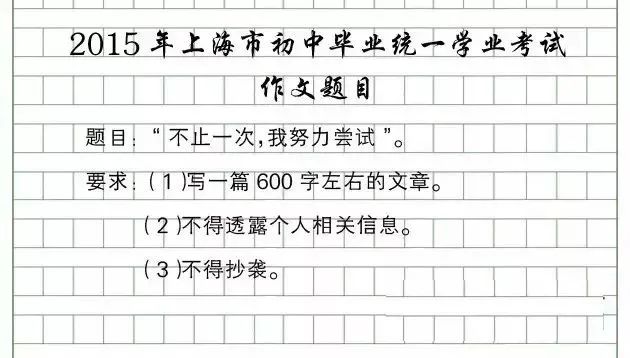 2015年上海市初中毕业统一学业考试
作文题目
题目：“不止一次，我努力尝试”。
要求：(1)写一篇600字左右的文章。
(2)不得透露个人相关信息。
(3)不得抄袭。